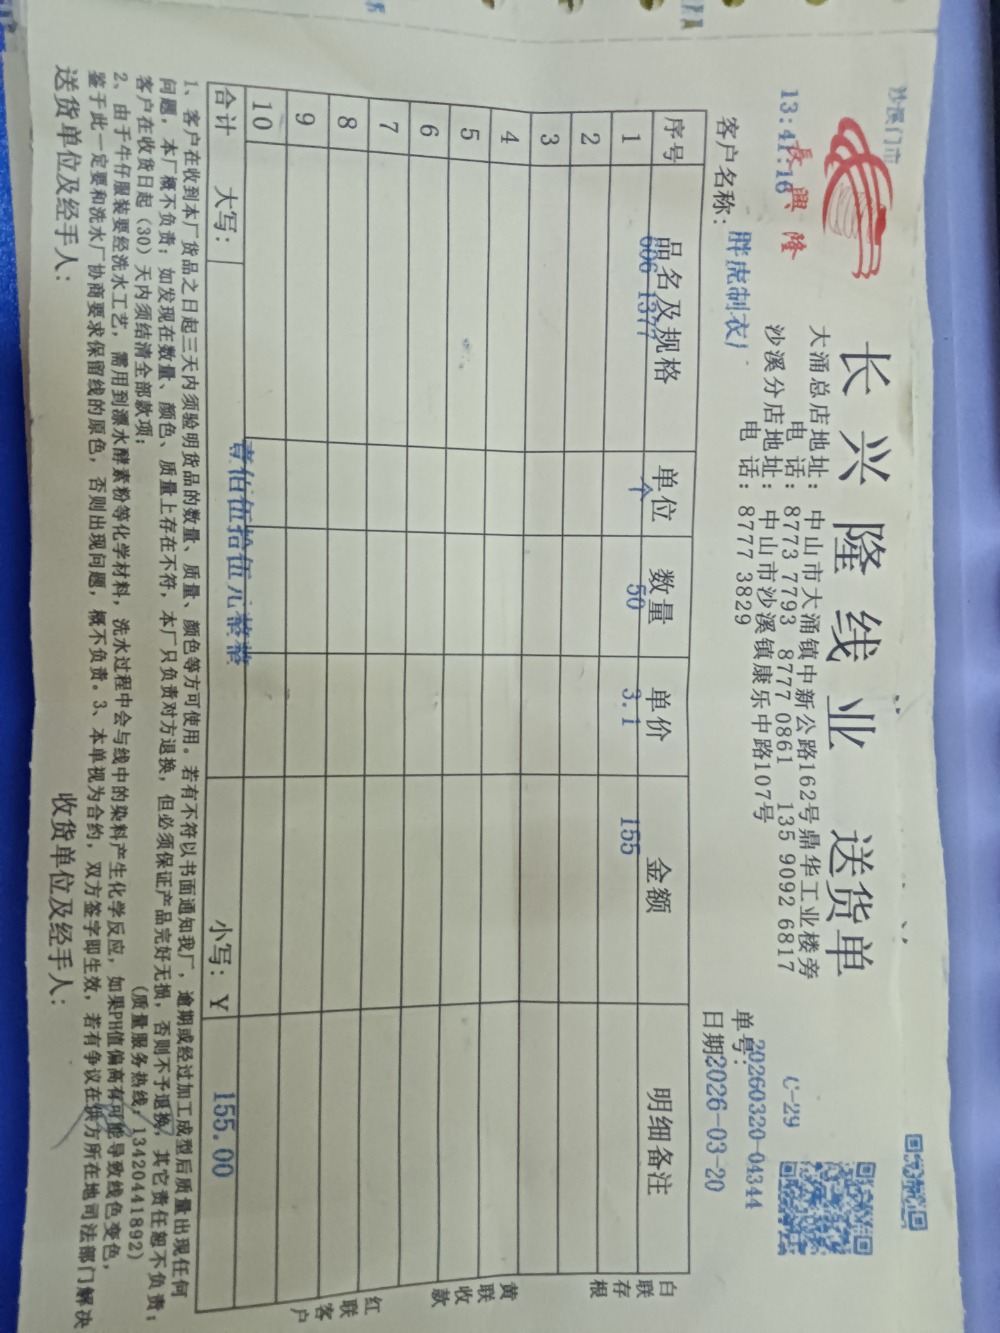 沙溪门市
13:41:16
長興隆
长兴隆线业 送货单
大涌总店地址: 中山市大涌镇中新公路162号鼎华工业楼旁
电 话: 8773 7793 8777 0861 135 9092 6817
沙溪分店地址: 中山市沙溪镇康乐中路107号
电 话: 8777 3829
C-29
单号: 20260320-04344
客户名称: 胖虎制衣厂
日期2026-03-20
序号 品名及规格 单位 数量 单价 金额 明细备注
1 606 1377 个 50 3.1 155
2
3
4
5
6
7
8
9
10
合计 大写: 壹佰伍拾伍元整整 小写: Y 155.00
白联存根
黄联收款
红联客户
1、客户在收到本厂货品之日起三天内须验明货品的数量、质量、颜色等方可使用。若有不符以书面通知我厂，逾期或经过加工成型后质量出现任何
问题，本厂概不负责；如发现在数量、颜色、质量上存在不符，本厂只负责对方退换，但必须保证产品完好无损，否则不予退换，其它责任恕不负责；
客户在收货日起（30）天内须结清全部款项； （质量服务热线：13420441892）
2、由于牛仔服装要经洗水工艺，需用到漂水酵素粉等化学材料，洗水过程中会与线中的染料产生化学反应，如果PH值偏高有可能导致线色变色，
鉴于此一定要和洗水厂协商要求保留线的原色，否则出现问题，概不负责。3、本单视为合约，双方签字即生效，若有争议在供方所在地司法部门解决
送货单位及经手人: 收货单位及经手人: